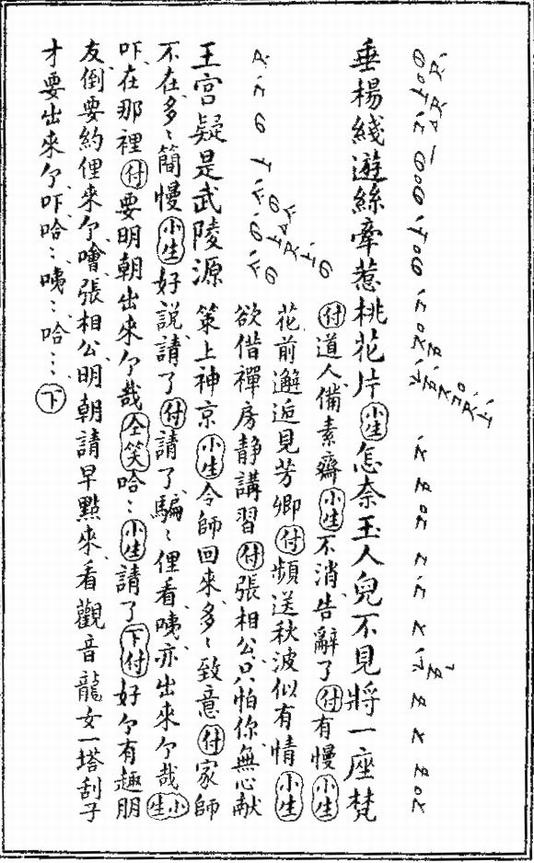 垂楊綫遊絲牽惹桃花片小生怎奈玉人兒不見將一座梵
王宮疑是武陵源
付道人備素齋小生不消告辭了付有慢小生
花前邂逅見芳卿付頻送秋波似有情小生
欲借禪房靜講習付張相公只怕你無心献
策上神京小生令師回來多〻致意付家師
不在多〻簡慢小生好說請了付請了騙〻俚看咦亦出來个哉小生
吓在那裡付要明朝出來个哉仝笑哈〻小生請了下付好个有趣朋
友倒要約俚來个噲張相公明朝請早點來看觀音龍女一塔刮子
才要出來个吓哈〻咦〻哈〻〻下